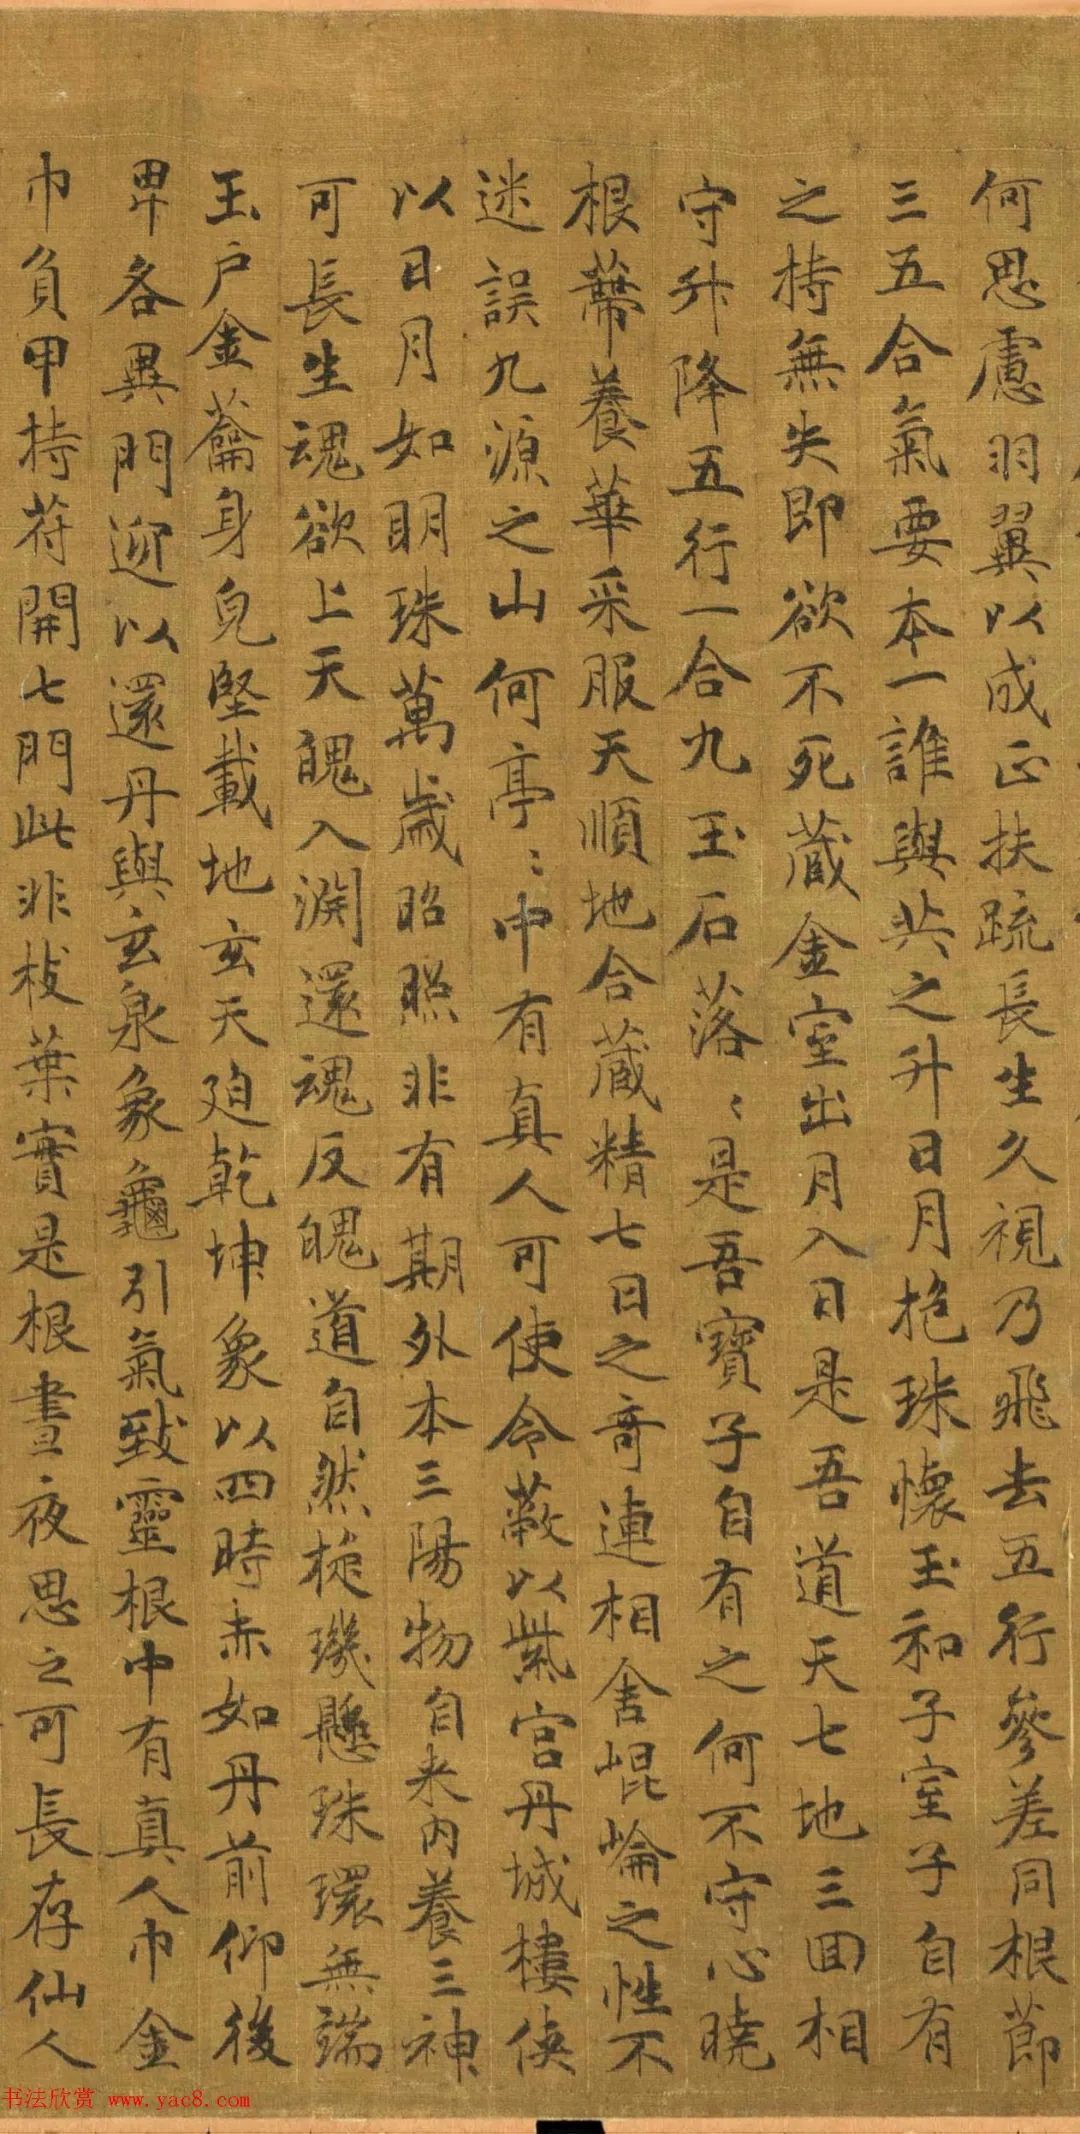 何思慮羽翼以成正扶疏長生久視乃飛去五行參差同根節
三五合氣要本一誰與共之升日月抱珠懷玉和子室子自有
之持無失即欲不死藏金室出月入日是吾道天七地三回相
守升降五行一合九玉石落〻是吾寶子自有之何不守心曉
根蔕養華采服天順地合藏精七日之奇連相舍崐崘之性不
迷誤九源之山何亭〻中有真人可使令蔽以紫宮丹城樓俠
以日月如明珠萬歲昭照非有期外本三陽物自来內養三神
可長生魂欲上天魄入淵還魂反魄道自然旋璣懸珠環無端
玉戶金籥身皃堅載地玄天迫乾坤象以四時赤如丹前仰後
卑各異門迎以還丹與玄泉象龜引氣致靈根中有真人巾金
巾負甲持苻開七門此非枝葉實是根晝夜思之可長存仙人
书法欣赏 www.yac8.com